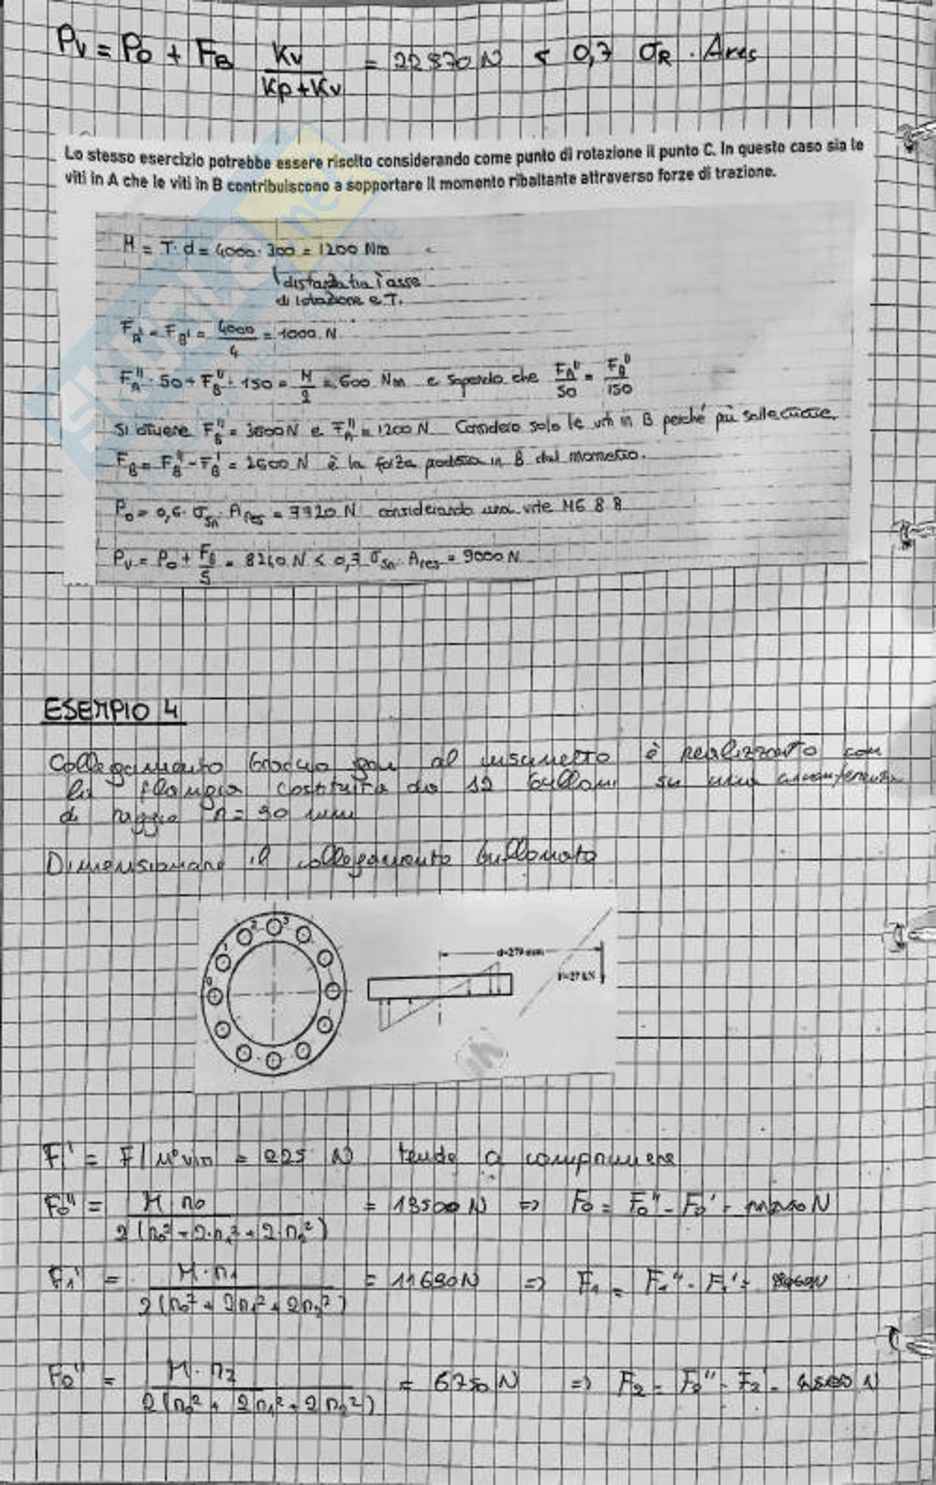 Pv = P0 + FB Kv / (Kp+Kv) = 22870 N < 0,7 σR · Ares
Lo stesso esercizio potrebbe essere risolto considerando come punto di rotazione il punto C. In questo caso sia le
viti in A che le viti in B contribuiscono a sopportare il momento ribaltante attraverso forze di trazione.
M = T·d = 4000·300 = 1200 Nm
distanza tra l'asse
di rotazione e T.
FA' = FB' = 4000/4 = 1000 N
FA''·50 + FB''·150 = M/2 = 600 Nm e sapendo che FA''/50 = FB''/150
Si ottiene FB'' = 3600N e FA'' = 1200N Considero solo le viti in B perché più sollecitate.
FB = FB'' - FB' = 2600 N è la forza prodotta in B dal momento.
P0 = 0,6· σSn· Ares = 7720 N considerando una vite M6 8.8
Pv = P0 + FB/5 = 8240 N < 0,7 σSn· Ares = 9000 N
ESEMPIO 4
Collegamento braccio gru al è realizzato con
la flangia costituita da 12 bulloni su una circonferenza
di raggio = 90 mm
Dimensionare il collegamento bullonato
0 1 2 3
d=279 mm
F=27 kN
F' = F/n°viti = 225 N tende a comprimere
F0'' = M·r0 / 2(r0² + 2·r1² + 2·r2²) = 13500 N ⇒ F0 = F0'' - F0' =
F1' = M·r1 / 2(r0² + 2r1² + 2r2²) = 11690N ⇒ F1 = F1'' - F1' =
= M·r2 / 2(r0² + 2r1² + 2r2²) = 6750 N ⇒ F2 =